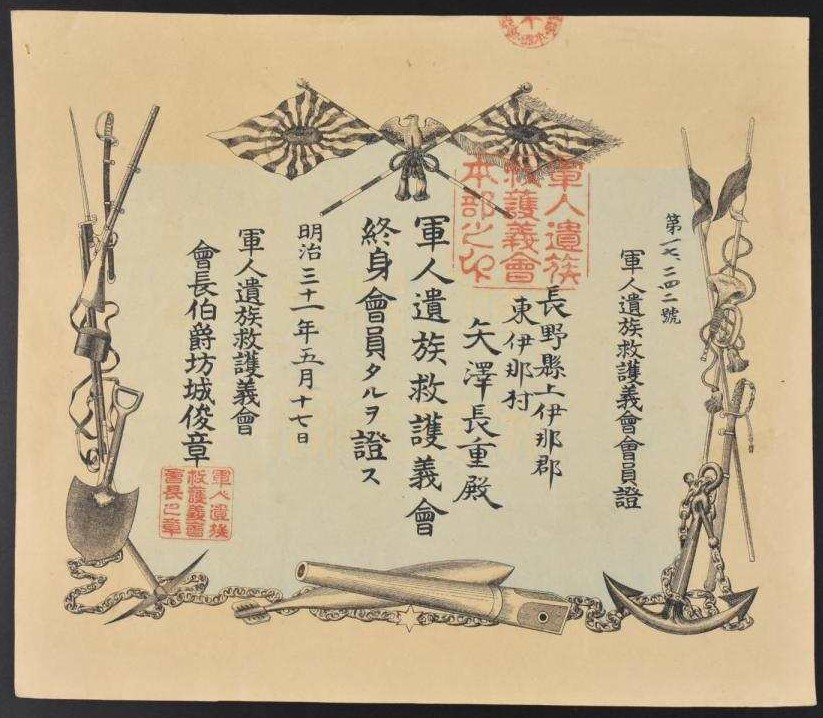 第一七、二四二號
軍人遺族救護義會會員證
長野縣上伊那郡
東伊那村
矢澤長重殿
軍人遺族救護義會
終身會員タルヲ證ス
明治三十一年五月十七日
軍人遺族救護義會
會長伯爵坊城俊章
軍人遺族
救護義會
本部之印
軍人遺族
救護義會
會長之章